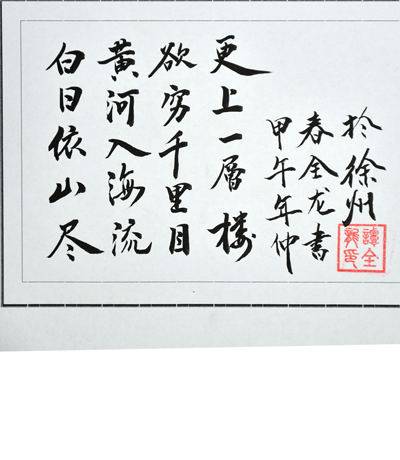 白日依山尽
黄河入海流
欲穷千里目
更上一層楼
甲午年仲
春全龙書
扵徐州
譚全
龍印